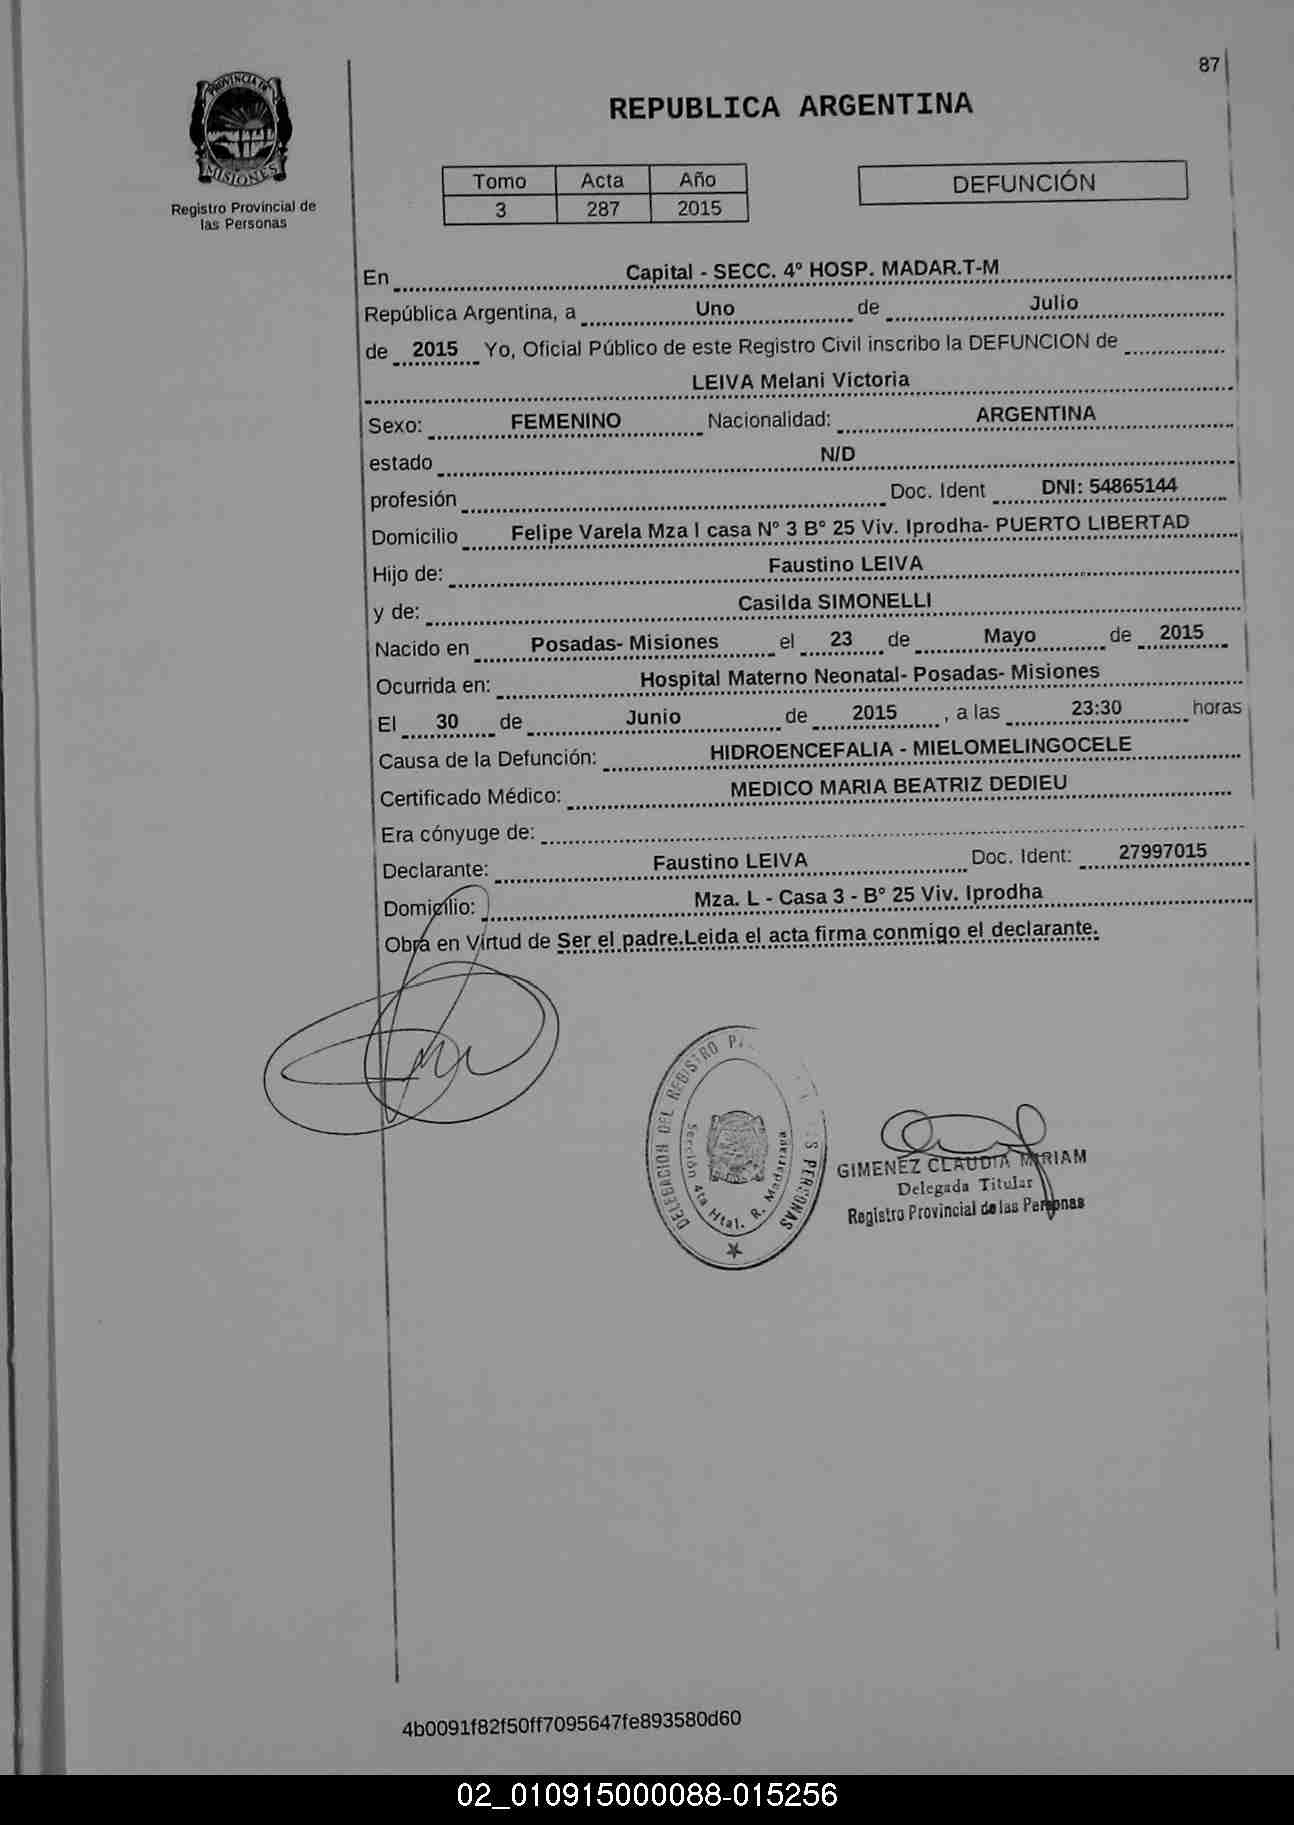 87
PROVINCIA DE
MISIONES
Registro Provincial de
las Personas
REPUBLICA ARGENTINA
Tomo Acta Año
3 287 2015
DEFUNCIÓN
En Capital - SECC. 4º HOSP. MADAR.T-M
República Argentina, a Uno de Julio
de 2015 Yo, Oficial Público de este Registro Civil inscribo la DEFUNCION de
LEIVA Melani Victoria
Sexo: FEMENINO Nacionalidad: ARGENTINA
estado N/D
profesión Doc. Ident DNI: 54865144
Domicilio Felipe Varela Mza I casa Nº 3 Bº 25 Viv. Iprodha- PUERTO LIBERTAD
Hijo de: Faustino LEIVA
y de: Casilda SIMONELLI
Nacido en Posadas- Misiones el 23 de Mayo de 2015
Ocurrida en: Hospital Materno Neonatal- Posadas- Misiones
El 30 de Junio de 2015 , a las 23:30 horas
Causa de la Defunción: HIDROENCEFALIA - MIELOMELINGOCELE
Certificado Médico: MEDICO MARIA BEATRIZ DEDIEU
Era cónyuge de:
Declarante: Faustino LEIVA Doc. Ident: 27997015
Domicilio: Mza. L - Casa 3 - Bº 25 Viv. Iprodha
Obra en Virtud de Ser el padre.Leida el acta firma conmigo el declarante.
DELEGACION DEL REGISTRO PERSONAS
Sección 4ta Htal. R. Madariaga
GIMENEZ CLAUDIA MIRIAM
Delegada Titular
Registro Provincial de las Personas
4b0091f82f50ff7095647fe893580d60
02_010915000088-015256